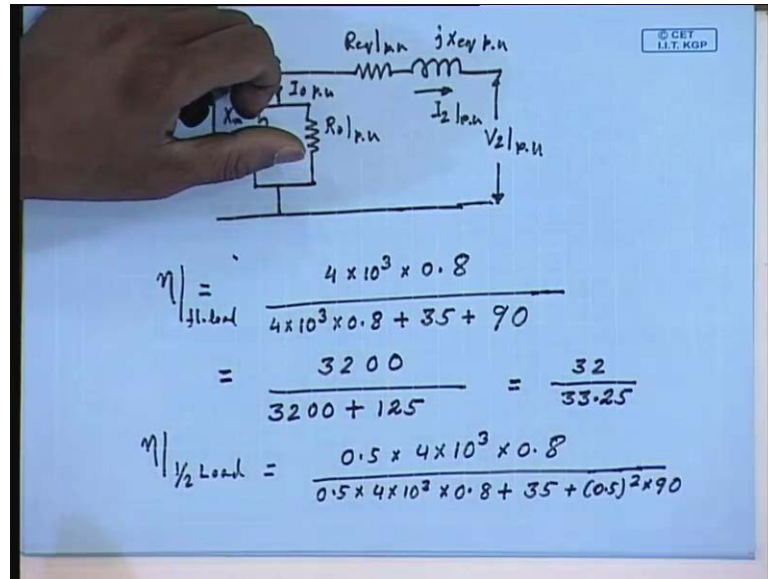 © CET
I.I.T. KGP
Req|p.u jxeq p.u
I0 p.u
Xm
R0|p.u
I2|p.u
V2|p.u
η|fl.load = 4 × 10³ × 0.8 / 4×10³ × 0.8 + 35 + 90
= 3200 / 3200 + 125 = 32 / 33.25
η|1/2 Load = 0.5 × 4×10³ × 0.8 / 0.5 × 4×10³ × 0.8 + 35 + (0.5)² × 90